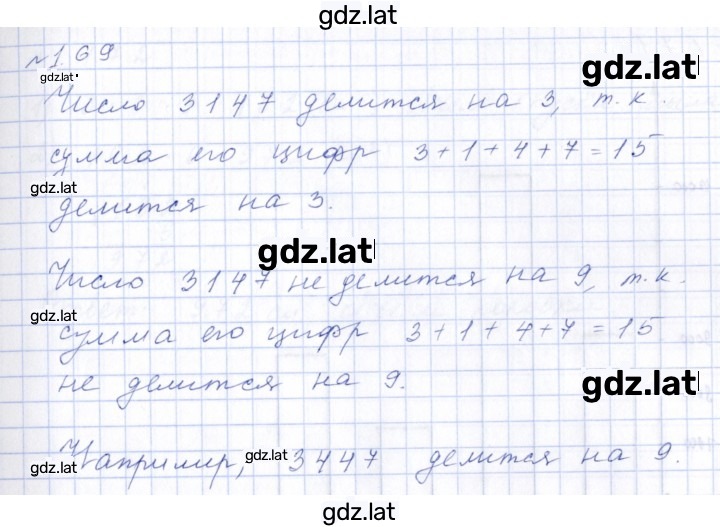 gdz.lat
№1.69
gdz.lat
gdz.lat
Число 3147 делится на 3, т.к.
сумма его цифр 3+1+4+7=15
gdz.lat
делится на 3.
gdz.lat
Число 3147 не делится на 9, т.к.
gdz.lat
сумма его цифр 3+1+4+7=15
не делится на 9.
gdz.lat
Например, 3447 делится на 9.
gdz.lat
gdz.lat
gdz.lat